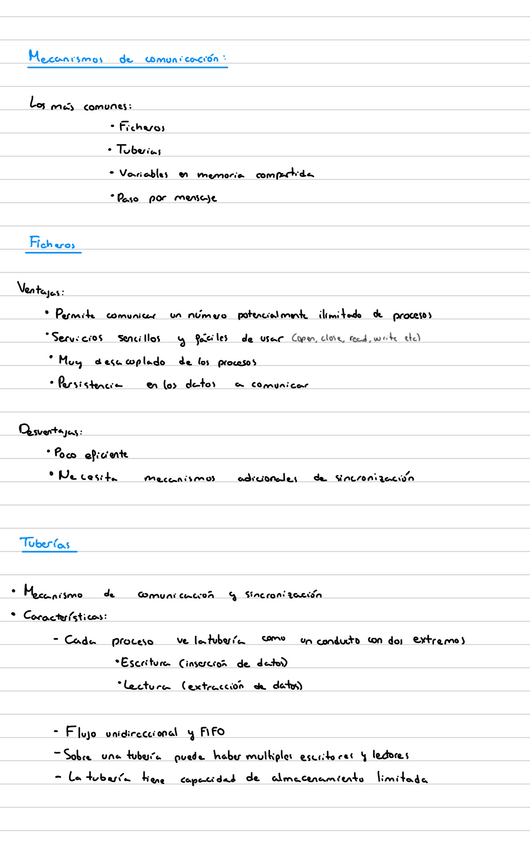 Mecanismos de comunicación:
Los más comunes:
• Ficheros
• Tuberias
• Variables en memoria compartida
• Paso por mensaje
Ficheros
Ventajas:
• Permite comunicar un número potencialmente ilimitado de procesos
• Servicios sencillos y fáciles de usar (open, close, read, write etc)
• Muy desacoplado de los procesos
• Persistencia en los datos a comunicar
Desventajas:
• Poco eficiente
• Necesita mecanismos adicionales de sincronización
Tuberías
• Mecanismo de comunicación y sincronización
• Características:
- Cada proceso ve la tubería como un conducto con dos extremos
• Escritura (inserción de datos)
• Lectura (extracción de datos)
- Flujo unidireccional y FIFO
- Sobre una tubería puede haber multiples escritores y lectores
- La tubería tiene capacidad de almacenamiento limitada